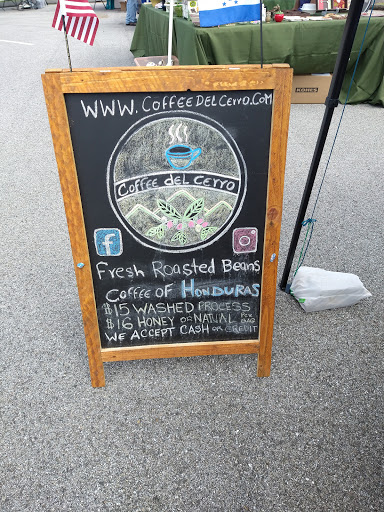 WWW.COFFEEDELCERRO.COM
COFFEE DEL CERRO
f
FRESH ROASTED BEANS
COFFEE OF HONDURAS
$15 WASHED PROCESS
$16 HONEY OR NATURAL PER BAG
WE ACCEPT CASH OR CREDIT
KOHLER